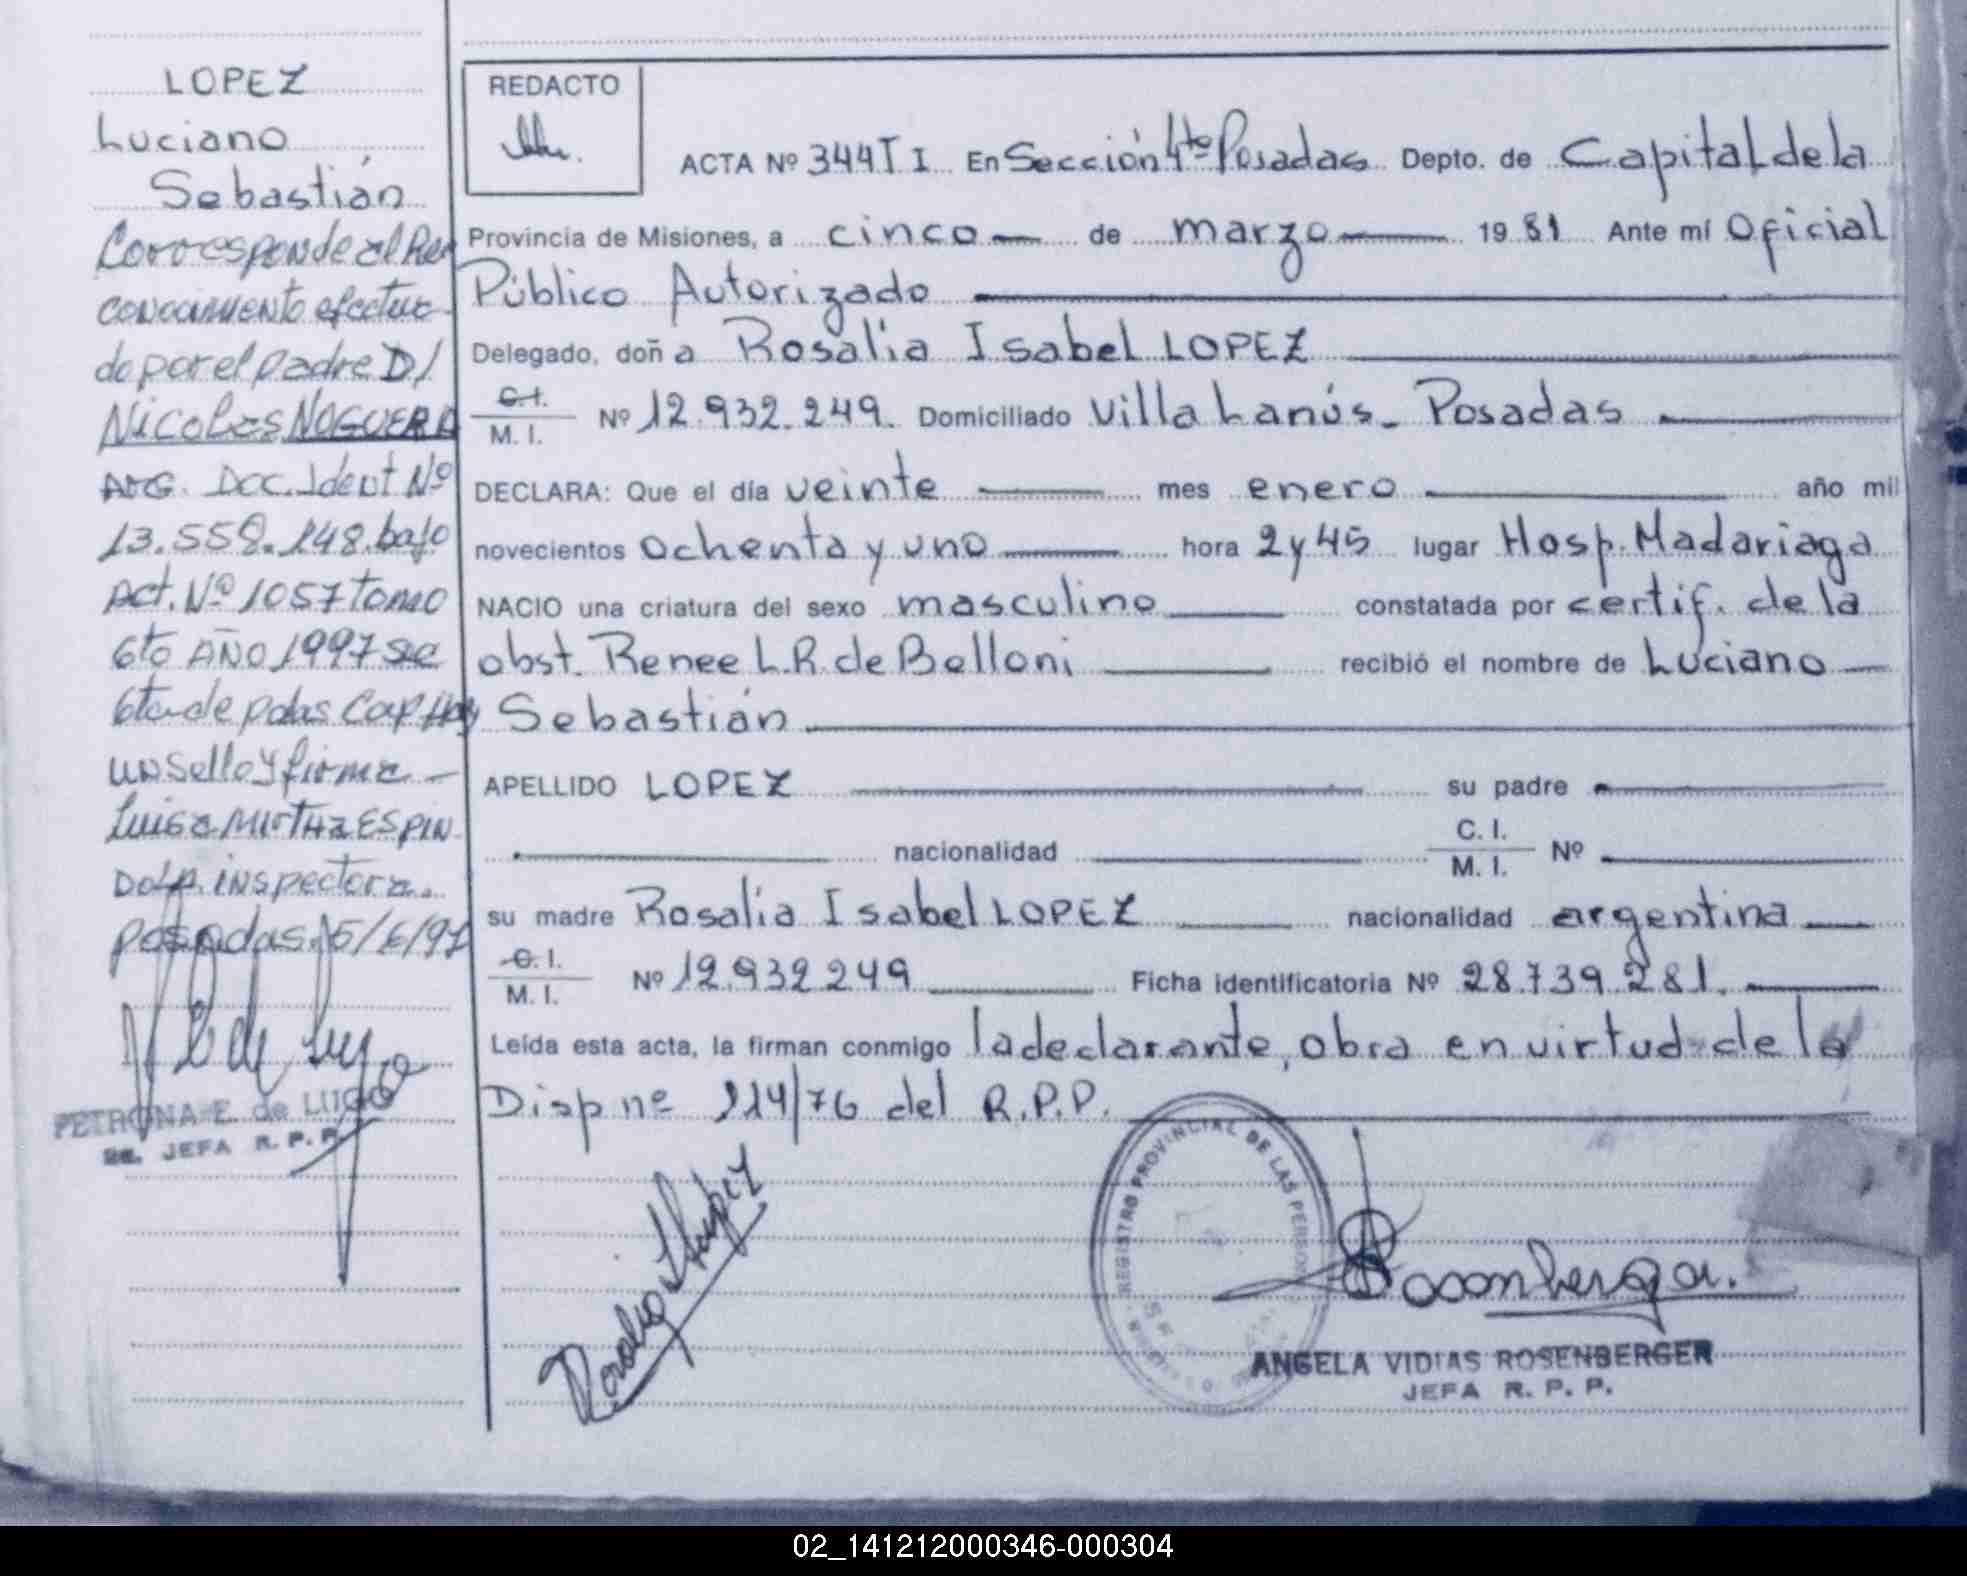 LOPEZ
Luciano
Sebastián
Corresponde al Re
conocimiento efectua
do por el padre D/
Nicolas NOGUERA
Arg. Doc. Ident Nº
13.558.148 bajo
Act. Nº 1057 Tomo
6to AÑO 1997 sec
6ta de pdas Cap Hay
un sello y firma —
Luisa Mirtha ESPIN
DOLA inspectora.
Posadas 5/6/97
PETRONA E. de LUGO
JEFA R. P. P.
REDACTO
ACTA Nº 344 T I En Sección 4ta Posadas Depto. de Capital de la
Provincia de Misiones, a cinco — de marzo — 1981 Ante mí Oficial
Público Autorizado
Delegado, doña Rosalia Isabel LOPEZ
C.I.
M. I. Nº 12.932.249. Domiciliado Villa Lanús - Posadas
DECLARA: Que el día veinte mes enero año mil
novecientos ochenta y uno hora 2 y 45 lugar Hosp. Madariaga
NACIO una criatura del sexo masculino constatada por certif. de la
obst. Renee L.R. de Belloni recibió el nombre de Luciano
Sebastián
APELLIDO LOPEZ su padre
nacionalidad C. I.
M. I. Nº
su madre Rosalia Isabel LOPEZ nacionalidad argentina
C. I.
M. I. Nº 12.932.249 Ficha identificatoria Nº 28.739.281.
Leída esta acta, la firman conmigo la declarante, obra en virtud de la
Disp nº 114/76 del R.P.P.
REGISTRO PROVINCIAL DE LAS PERSONAS
Rosalia I López
Rosenberger.
ANGELA VIDIAS ROSENBERGER
JEFA R. P. P.
02_141212000346-000304